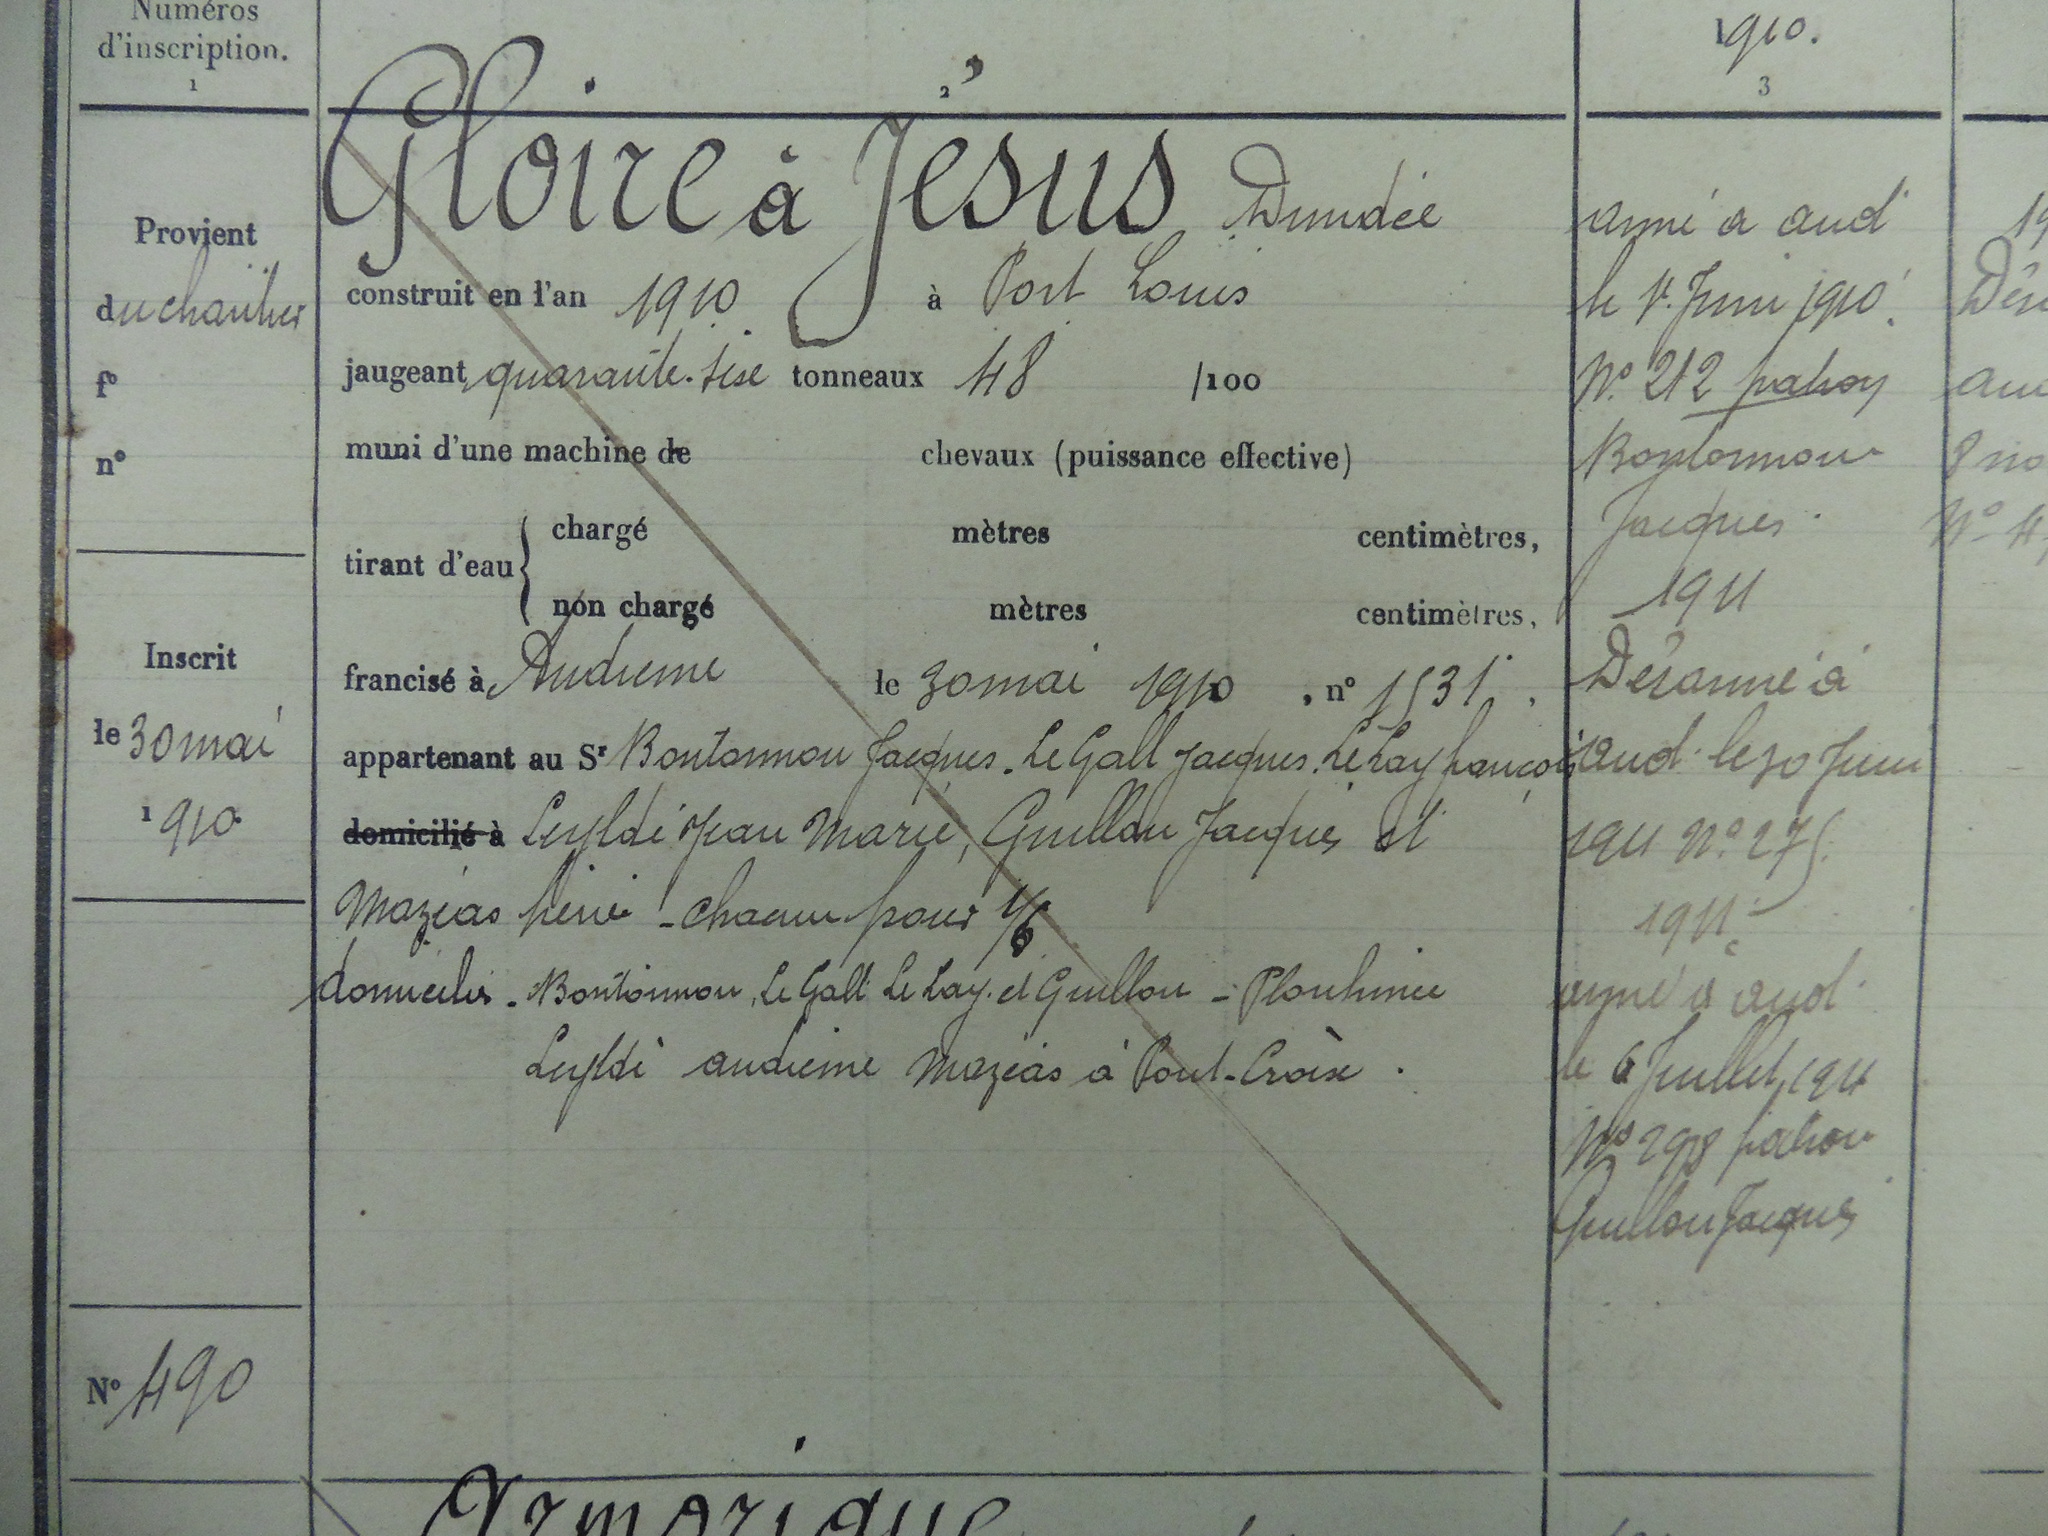 Numéros
d'inscription.
1
Provient
du chantier
fº
nº
Inscrit
le 30 mai
1910
Nº 490
2
Gloire à Jésus Dundée
construit en l'an 1910 à Port Louis
jaugeant quarante-six tonneaux 48 /100
muni d'une machine de chevaux (puissance effective)
tirant d'eau
chargé mètres centimètres,
non chargé mètres centimètres,
francisé à Audierne le 30 mai 1910, nº 1531.
appartenant au Sr Bontonnou Jacques. Le Gall Jacques. Le Lay françois
domicilié à Jean Marie, Guillou Jacques et
Mazéas hervé - chacun pour 1/6
domiciliés - Bontonnou, Le Gall Le Lay. et Guillou - Plouhinec
audierne Mazéas à Pont-Croix.
1910.
3
armé à aud
le 1r Juin 1910.
Nº 212 patron
Bontonnou
Jacques.
1911
Désarmé à
aud. le 30 Juin
1911 Nº 275.
1911.
armé à aud.
le 6 Juillet 1911
Nº 298 patron
Guillou Jacques
19
Armorique